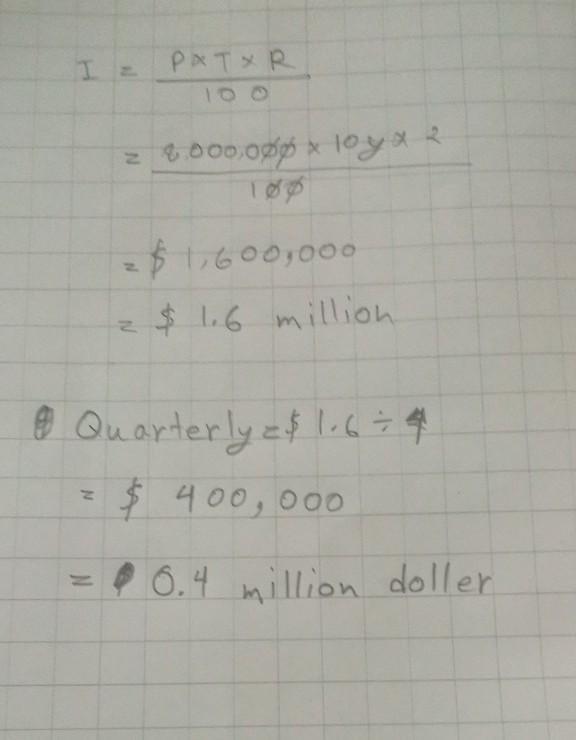 I = P × T × R
100
= 8,000,000 × 10y × 2
100
= $ 1,600,000
= $ 1.6 million
Quarterly = $ 1.6 ÷ 4
= $ 400,000
= 0.4 million doller